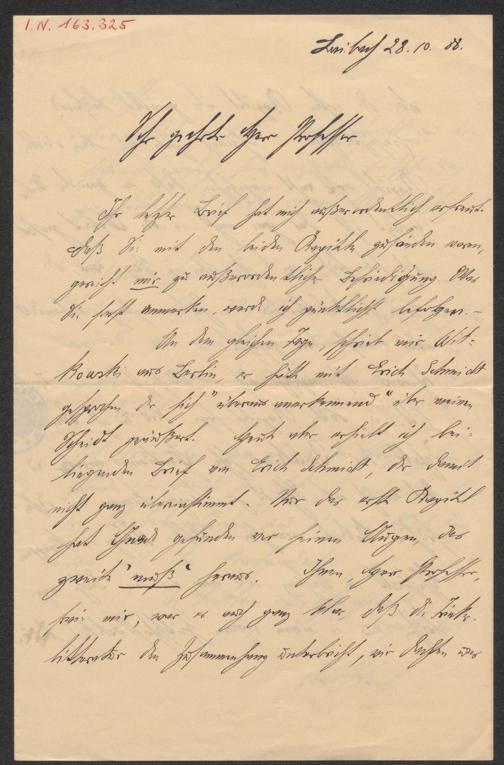 I.N. 163.325
Laibach 28.10. 88.
Sehr geehrter Herr Professor
Ihr letzter Brief hat mich außerordentlich erfreut.
Daß Sie mit den beiden Kapiteln zufrieden waren,
gereicht mir zu außerordentlicher Befriedigung. Was
Sie sonst anmerken, werde ich pünktlichst befolgen. –
An dem gleichen Tage schrieb mir Wit-
kowski aus Berlin, er hätte mit Erich Schmidt
gesprochen, der sich "überaus anerkennend" über meinen
Scheidt geäussert. Heute aber erhielt ich bei-
liegenden Brief von Erich Schmidt, der damit
nicht ganz übereinstimmt. Nur das erste Kapitel
hat Gnade gefunden vor seinen Augen, das
zweite "muß" heraus. Ihnen, Herr Professor,
wie mir, war es auch ganz klar, daß die
litteratur den Zusammenhang unterbricht, wir dachten